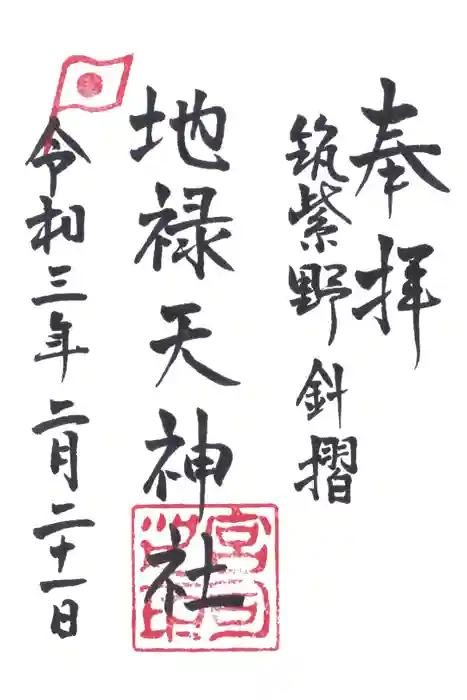 奉拝
筑紫野 針摺
地禄天神社
令和三年二月二十一日
宮司之印